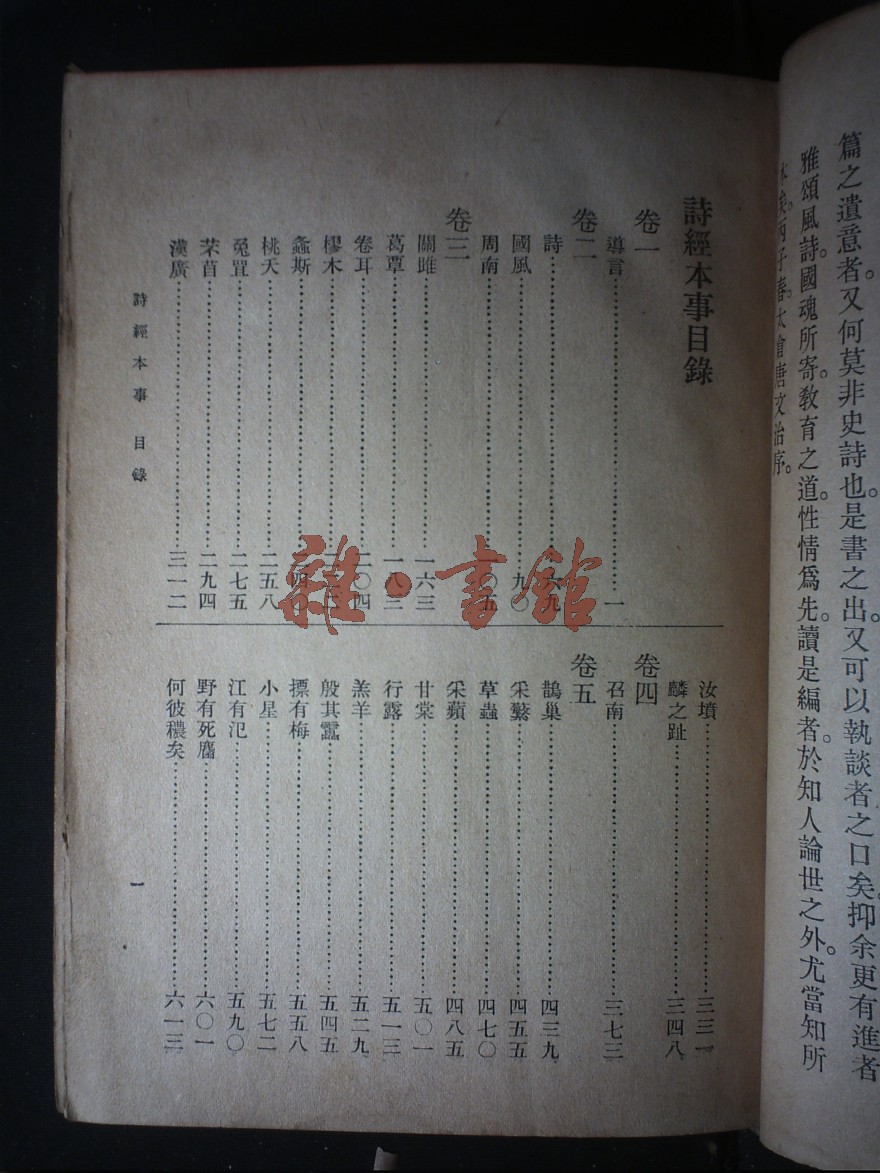 篇之遺意者。又何莫非史詩也。是書之出。又可以執談者之口矣。抑余更有進者
雅頌風詩。國魂所寄。教育之道。性情爲先。讀是編者。於知人論世之外。尤當知所
本矣。丙子春。太倉唐文治序。
詩經本事目錄
卷一
導言 一
卷二
詩 六九
國風 九〇
周南 一〇五
卷三
關雎 一六三
葛覃 一八三
卷耳 二〇四
樛木
螽斯
桃夭 二五八
兔罝 二七五
芣苢 二九四
漢廣 三一二
汝墳 三三一
麟之趾 三四八
卷四
召南 三七三
卷五
鵲巢 四三九
采蘩 四五五
草蟲 四七〇
采蘋 四八五
甘棠 五〇一
行露 五一三
羔羊 五二九
殷其靁 五四五
摽有梅 五五八
小星 五七二
江有汜 五九〇
野有死麕 六〇一
何彼穠矣 六一三
詩經本事 目錄
一
雜·書館